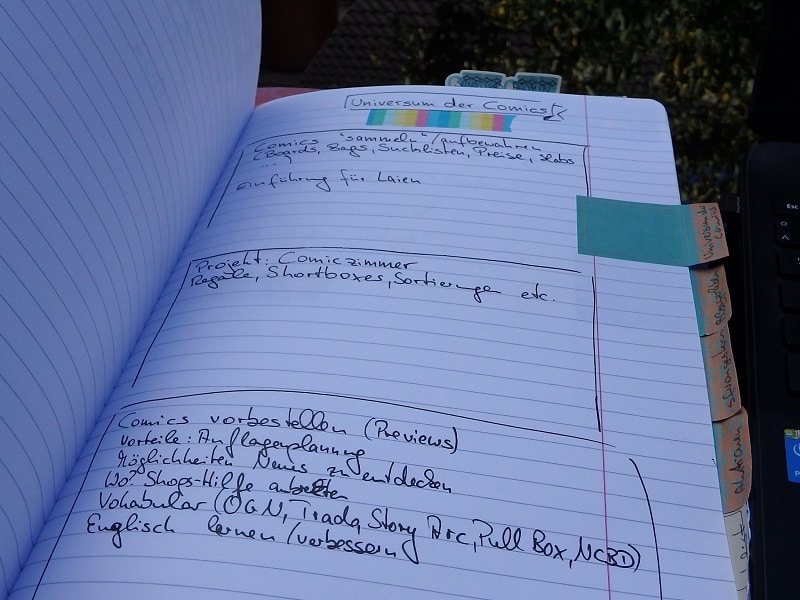 Universum der Comics
Comics "sammeln"/aufbewahren
(Boards, Bags, Suchlisten, Preise, Slabs
....
Einführung für Laien
Projekt: Comiczimmer
Regale, Shortboxes, Sortierungen etc.
Comics vorbestellen (Previews)
Vorteile: Auflagenplanung
Möglichkeiten Neues zu entdecken
Wo? Shops-Hilfe anbieten
Vokabular (OGN, Trade, Story Arc, Pull Box, NCBD)
Englisch lernen/verbessern
Universum der Comics
Esc